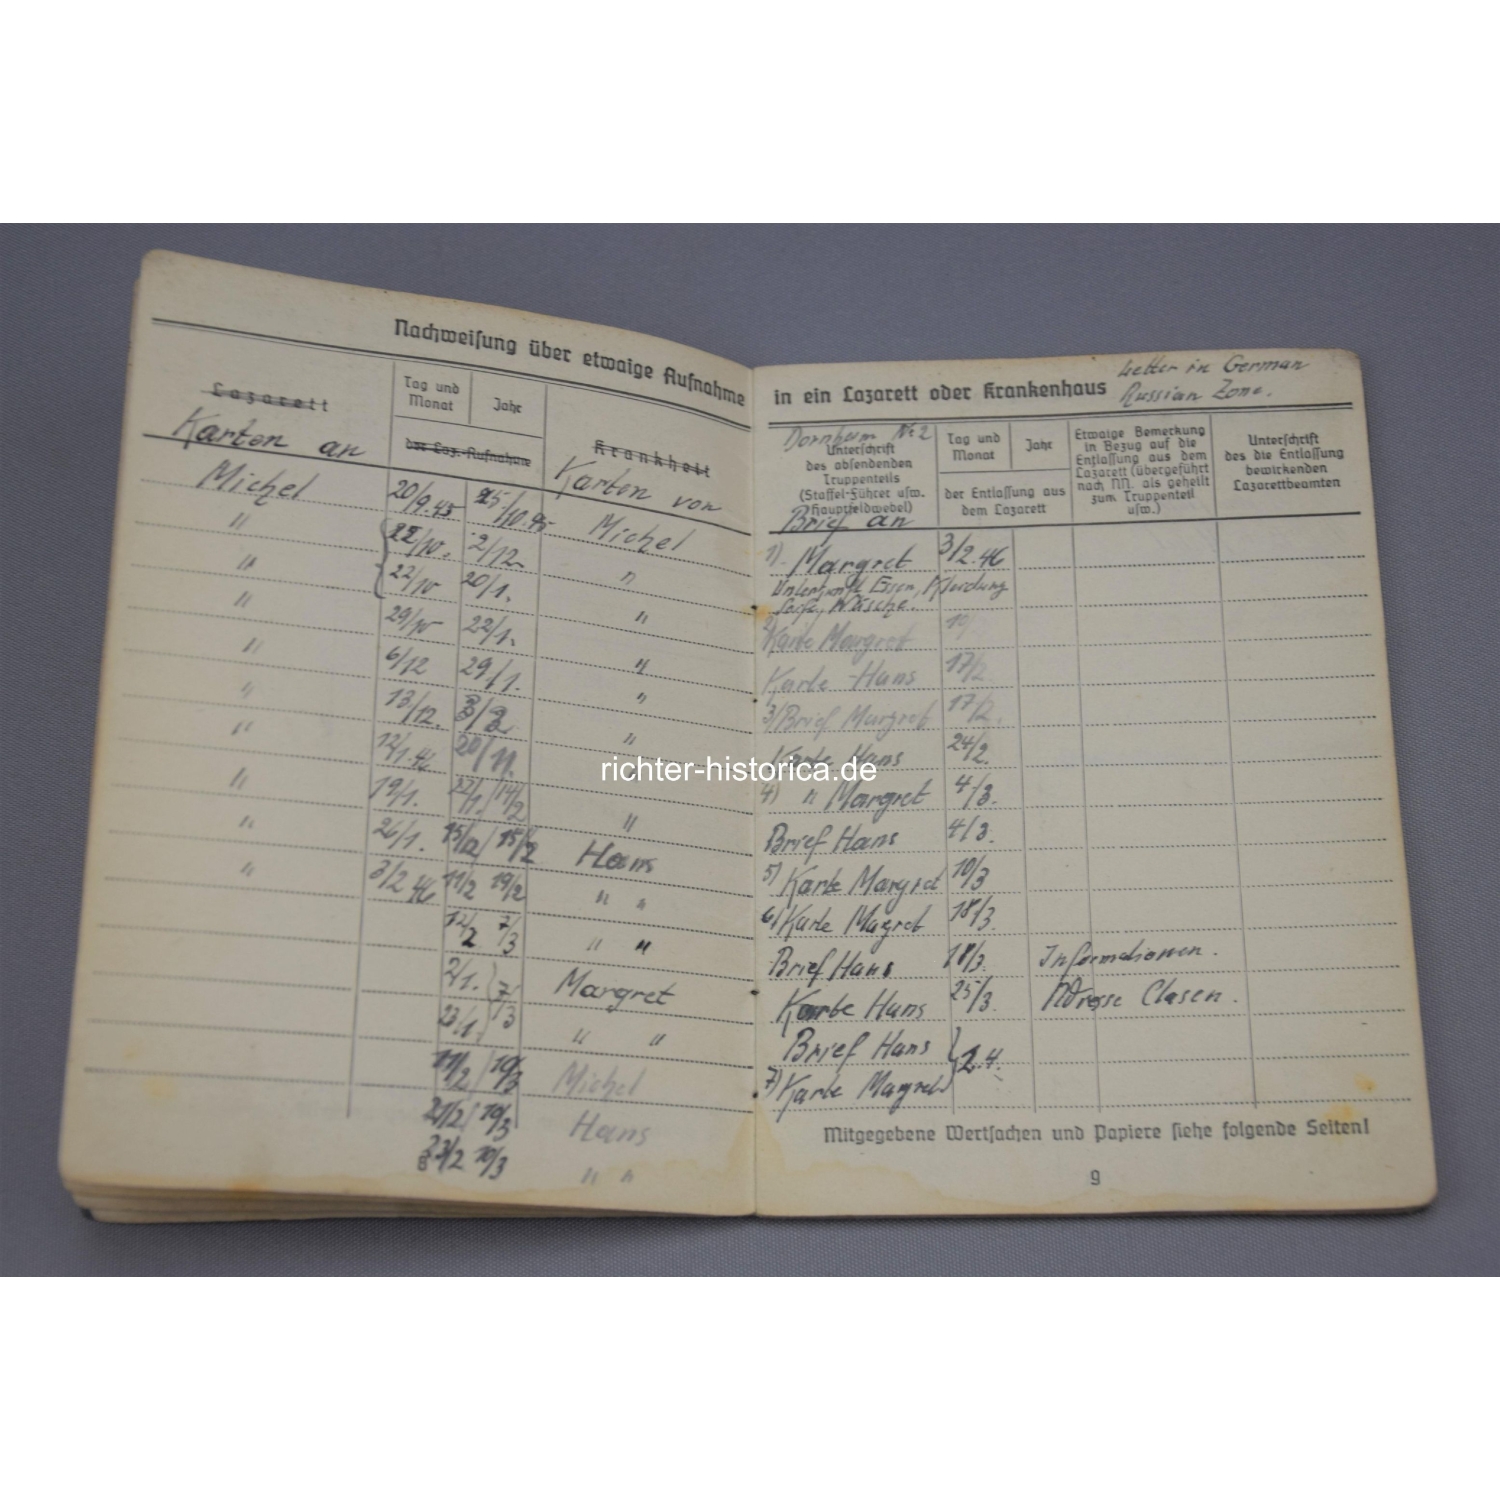 Nachweisung über etwaige Aufnahme
Lazarett
Tag und Monat
Jahr
der Laz.-Aufnahme
Krankheit
Karten an
Karten von
Michel 20/9.45 25/10.45 Michel
" 22/10. 2/12. "
" 22/10 20/1. "
" 29/10 22/1. "
" 6/12 29/1. "
" 13/12. "
" 12/1.46
" 19/1. 22/1. 14/2 "
" 26/1. 15/2 Hans
" 3/2 46 11/2 19/2 " "
12/2 7/3 " "
2/1. 7/3 Margret
23/1. " "
11/2 10/3 Michel
21/2 10/3 Hans
23/2 10/3 " "
richter-historica.de
Letter in German
Russian Zone.
in ein Lazarett oder Krankenhaus
Dornheim Nr 2
Unterschrift
des absendenden
Truppenteils
(Staffel-Führer usw.
Hauptfeldwebel)
Tag und Monat
Jahr
der Entlassung aus
dem Lazarett
Etwaige Bemerkung
in Bezug auf die
Entlassung aus dem
Lazarett (übergeführt
nach NN. als geheilt
zum Truppenteil
usw.)
Unterschrift
des die Entlassung
bewirkenden
Lazarettbeamten
Brief an
1) Margret 3/2.46
Unterkunft Essen, Kleidung
Seife, Wäsche.
2) Karte Margret
Karte Hans 17/2
3) Brief Margret 17/2.
Karte Hans 24/2.
4) " Margret 4/3.
Brief Hans 4/3.
5) Karte Margret 10/3
6) Karte Magret 18/3.
Brief Hans 18/3. Informationen.
Karte Hans 25/3. Adresse Clasen.
Brief Hans
7) Karte Magret 2.4.
Mitgegebene Wertsachen und Papiere siehe folgende Seiten!
9